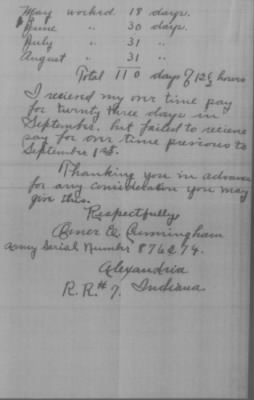 May worked 18 days.
June " 30 days.
July " 31 "
August " 31 "
Total 110 days of 12½ hours
I recieved my over time pay
for twenty three days in
September. but failed to recieve
pay for over time previous to
September 1st.
Thanking you in advance
for any consideration you may
give this.
Respectfully
Cunningham
Army Serial Number 876274.
Alexandria
R.R.# 7. Indiana.